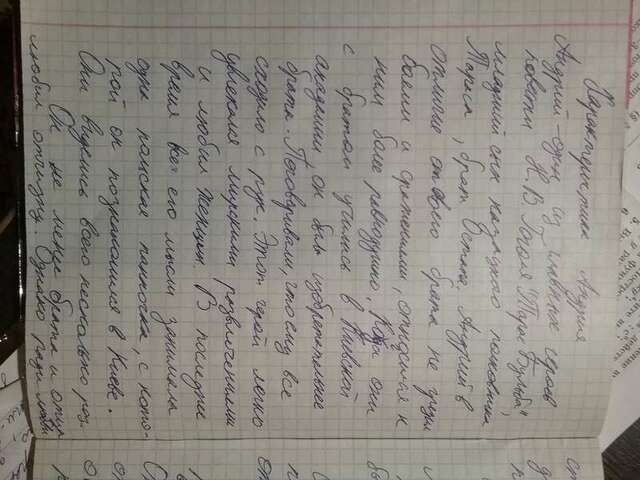 Характеристика Андрия
Андрий - один из главных героев
повести Н. В. Гоголя "Тарас Бульба",
младший сын казацкого полковника
Тараса, брат Остапа. Андрий в
отличие от своего брата не грезил
боями и сражениями, относился к
ним более равнодушно. Когда они
с братом учились в Киевской
академии он был изобретательнее
брата. Поговаривали, что ему все
сходило с рук. Этот герой легко
увлекался мирскими развлечениями
и любил женщин. В последнее
время все его мысли занимала
одна панская панночка, с кото-
рой он познакомился в Киеве.
Они виделись всего несколько раз.
Он не менее брата и отца
любил отчизну. Однако ради любви